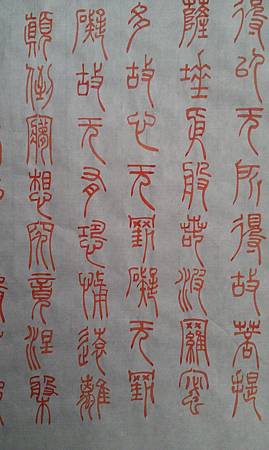 得以无所得故菩提
薩埵依般若波羅蜜
多故心无罣礙无罣
礙故无有恐怖遠離
顛倒夢想究竟涅槃